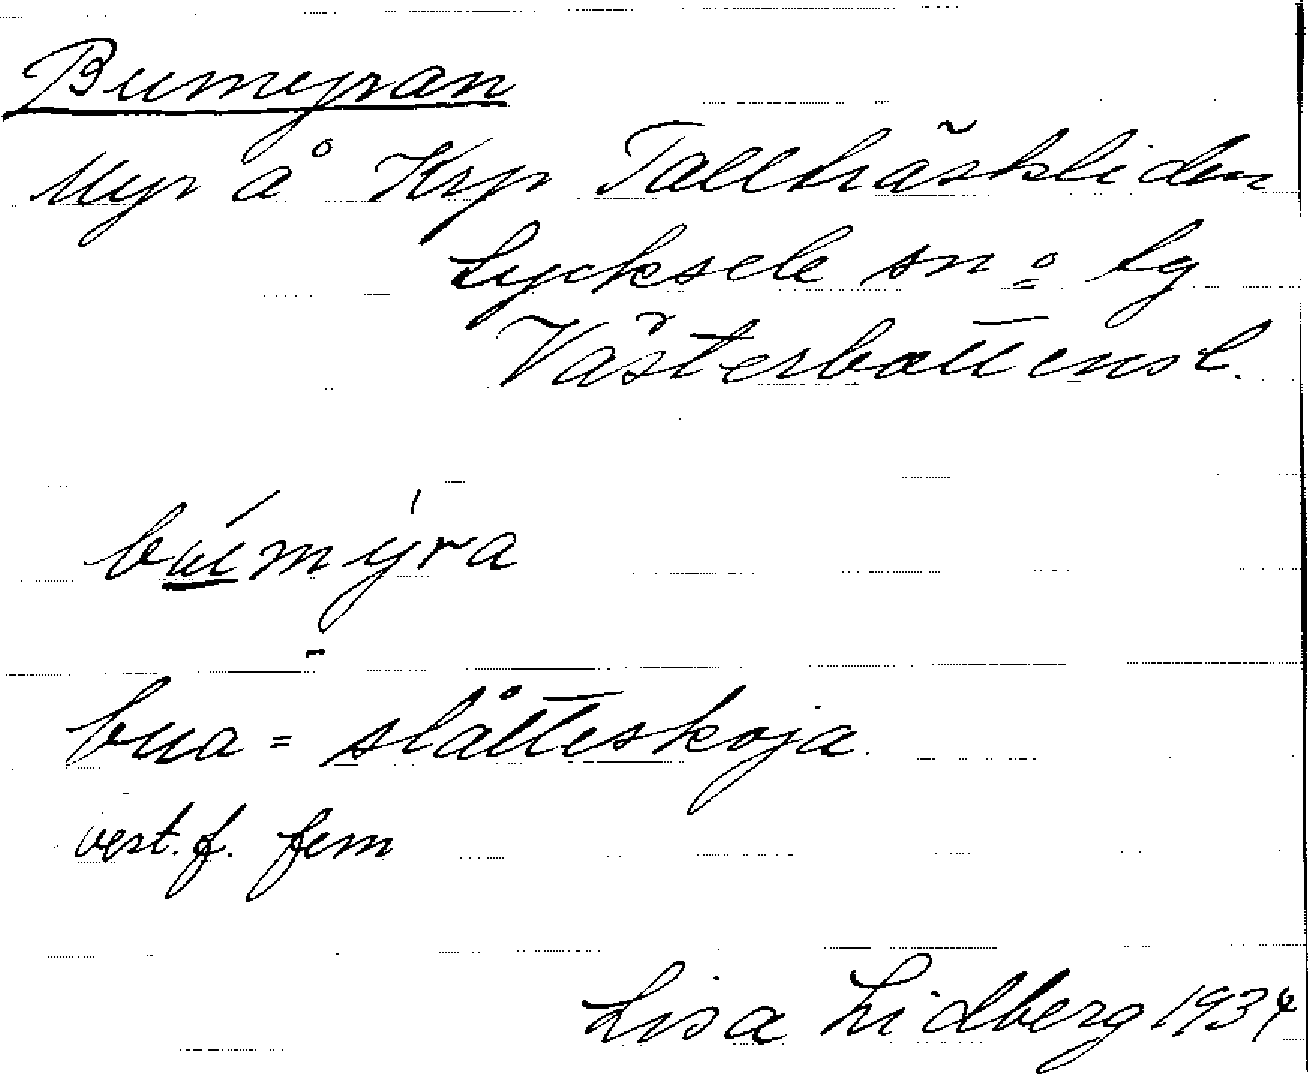 Bumyran
Myr å Krp Tallträskliden
Lycksele sn o lg
Västerbottensl.
búmýra
bua = slåtteskoja.
best. f. fem
Lisa Lidberg 1934